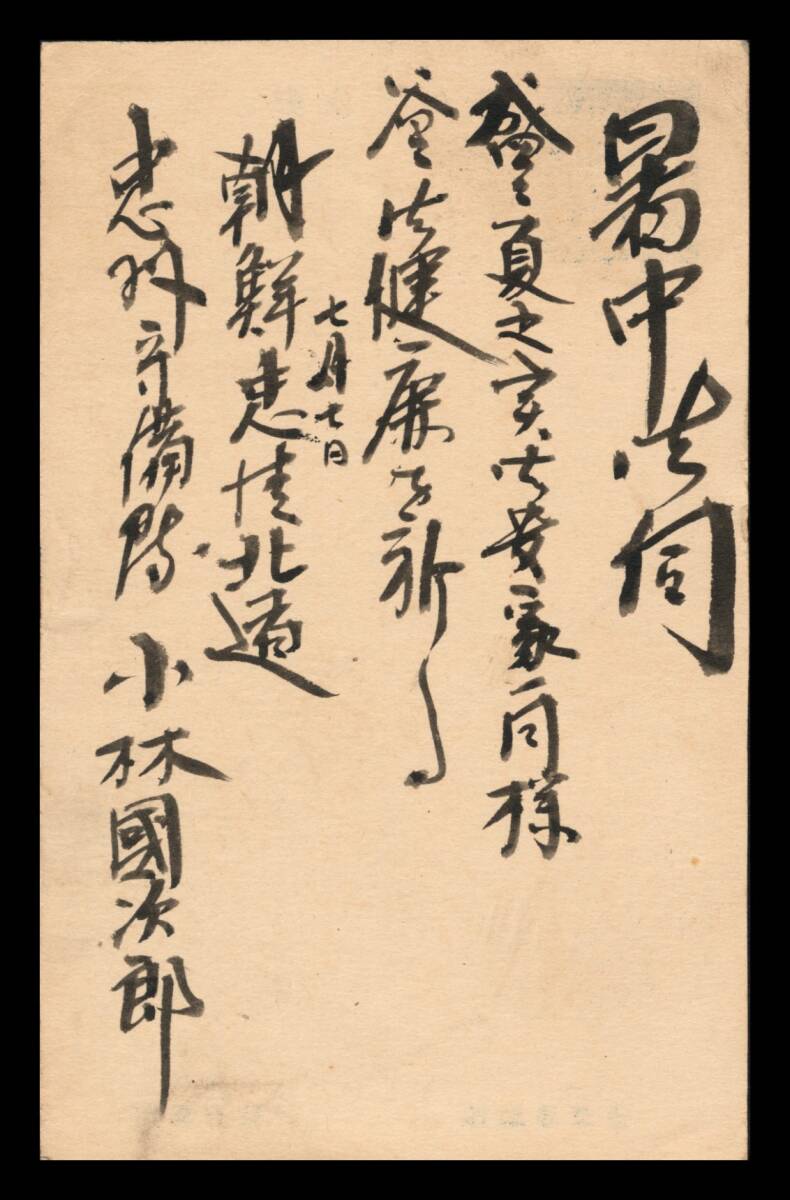 暑中御伺
盛夏之実御貴家一同様
益々御健康を祈る
七月七日
朝鮮忠清北道
忠州守備隊 小林國次郎